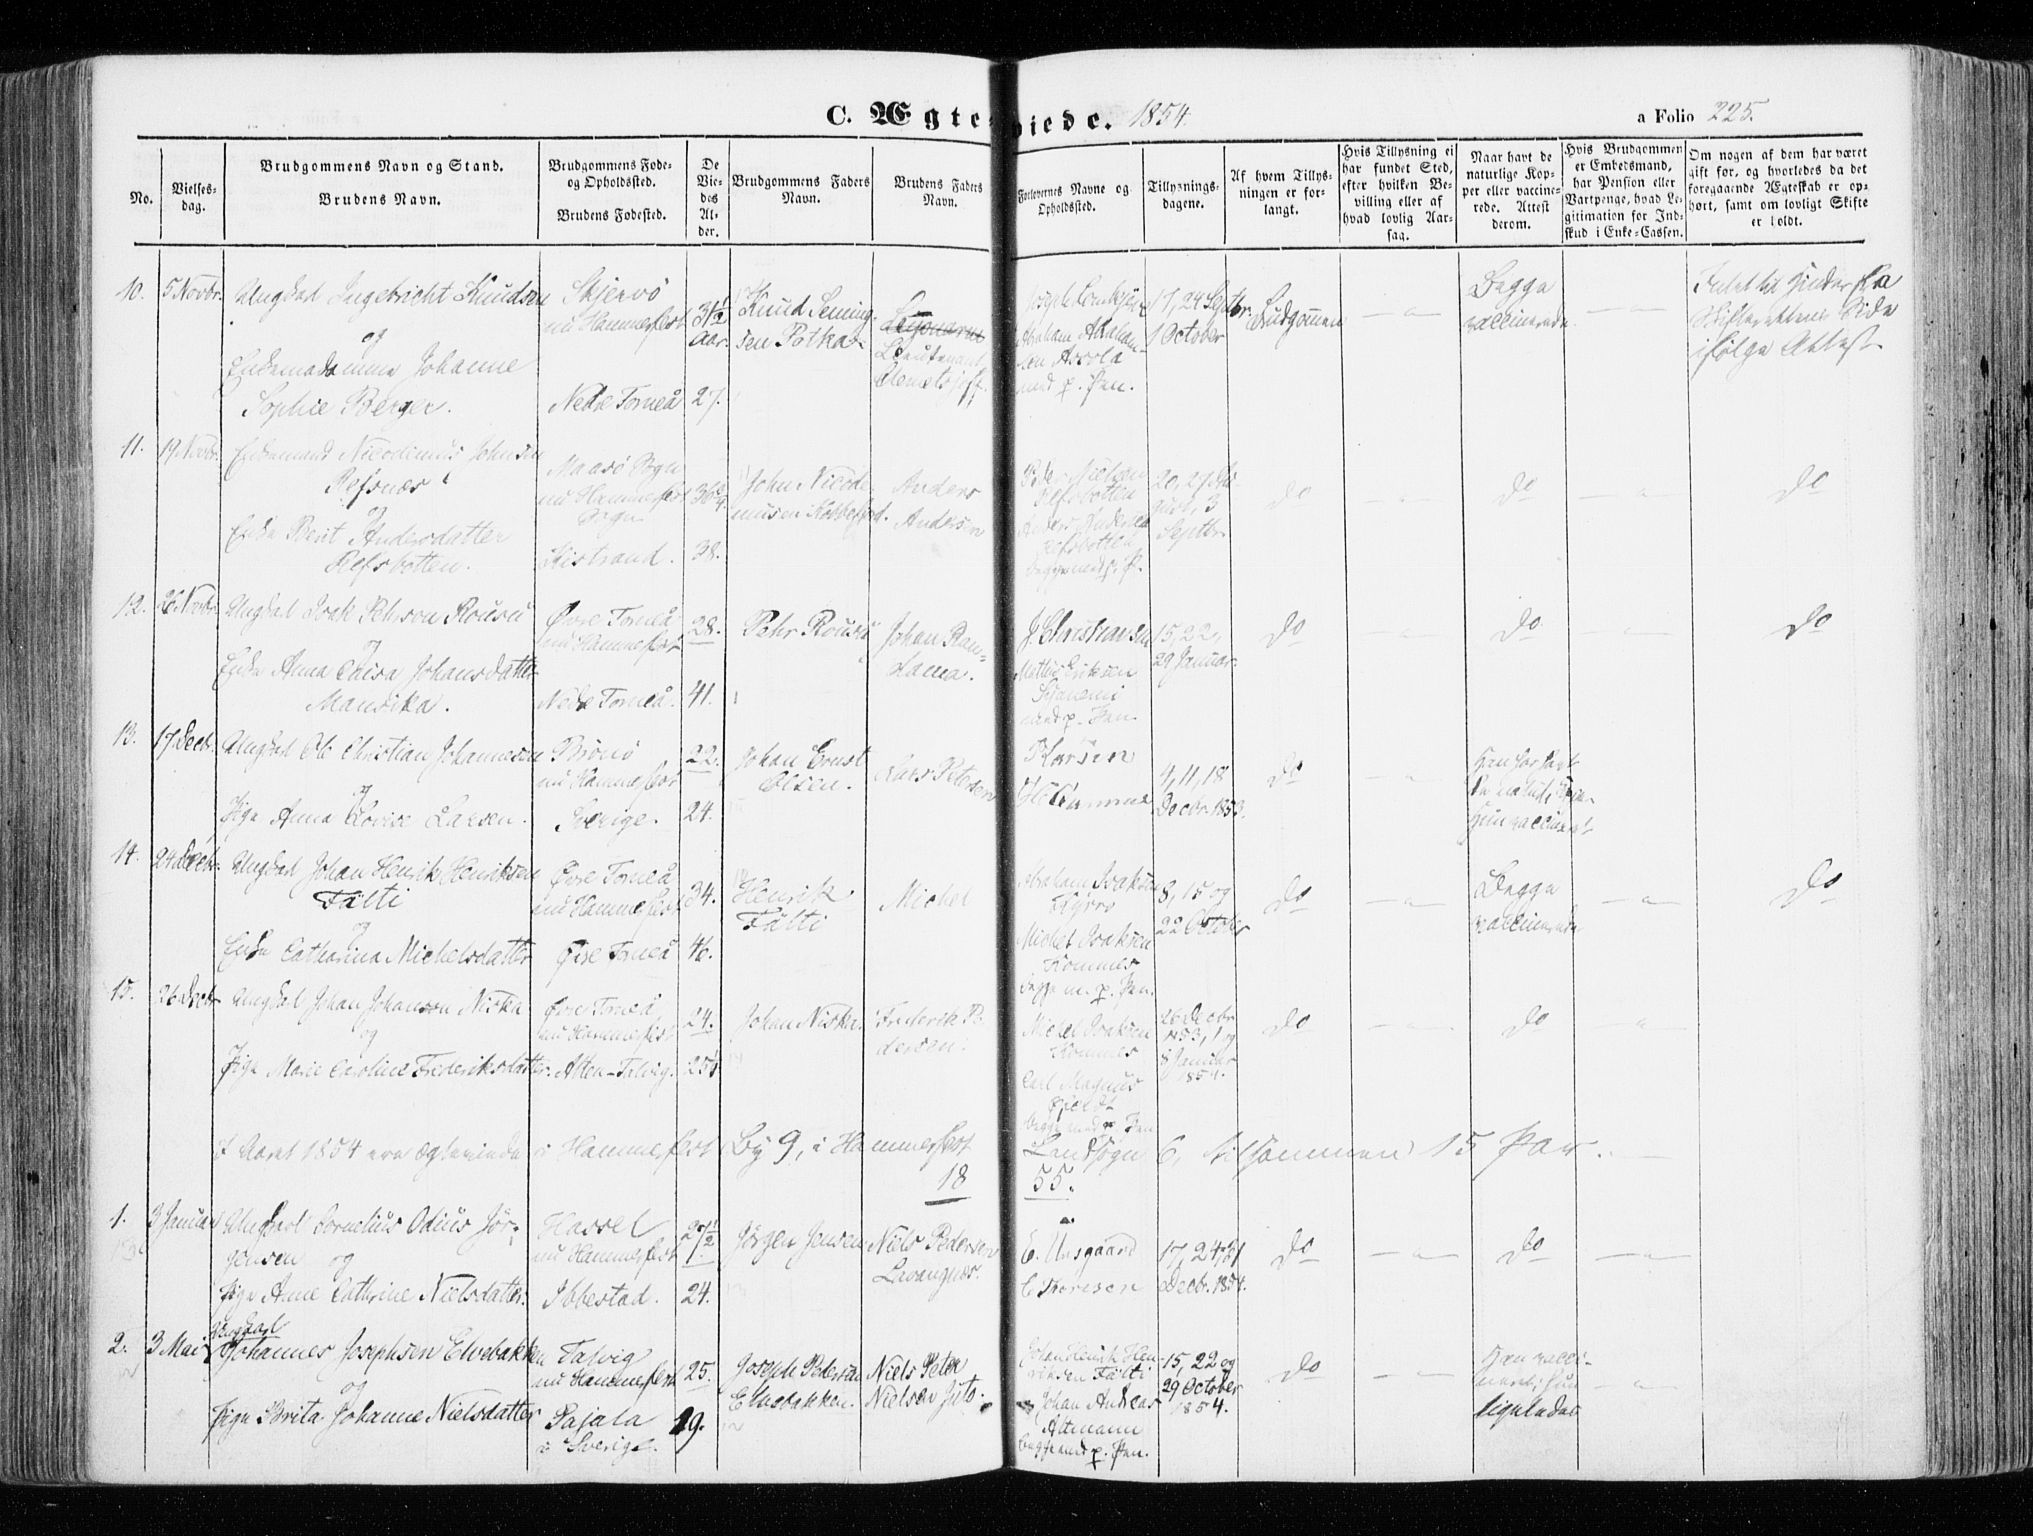 C. Ægte- viede. 1854. a Folio 225.
No.
Vielses-
dag.
Brudgommens Navn og Stand.
Brudens Navn.
Brudgommens Føde-
og Opholdssted.
Brudens Fødested.
De
Vie-
des
Al-
der.
Brudgommens Faders
Navn.
Brudens Faders
Navn.
Forlovernes Navne og
Opholdssted.
Tillysnings-
dagene.
Af hvem Tillys-
ningen er for-
langt.
Hvis Tillysning ei
har fundet Sted,
efter hvilken Be-
villing eller af
hvad lovlig Aar-
sag.
Naar havt de
naturlige Kop-
per eller vaccine-
rede. Attest
derom.
Hvis Brudgommen
er Embedsmand,
har Pension eller
Vartpenge, hvad Le-
gitimation for Ind-
skud i Enke-Cassen.
Om nogen af dem har været
gift før, og hvorledes da det
foregaaende Ægteskab er op-
hørt, samt om lovligt Skifte
er holdt.
10. 5 Novbr. Ungkarl Ingebricht Knudsen
og
Enkemadamme Johanne
Sophie Berger.
Skjervø
nu Hammerfest
Nedre Torneå
31½
Aar.
27.
Knud Seming-
sen Potka
Lieutenant
Joseph
Abraham Abraham-
sen
med p. Pen.
17, 24 Septbr.
1 October
Brudgommen
Begge
vaccinerede
Intet til Hinder fra
Skifterettens Side
ifølge Attest
11. 19 Novbr. Enkemand Nicodemus Johnsen
Refsnes
og
Enke Berit Andersdatter
Refsbotten.
Maasø Sogn
nu Hammerfest
Sogn
Kistrand.
36¾
38.
John Nicode-
musen Kobbefjord.
Anders
Andersen
Peder Nielsen
Refsbotten
Anders Andersen
Refsbotten
begge med p. P.
20, 27 Au-
gust, 3
Septbr.
Do
Do
Do
12. 26 Novbr. Ungkarl Isak Pehrson Rousu
og
Enke Anna Caisa Johansdatter
Mansika.
Øvre Torneå
nu Hammerfest
Nedre Torneå.
28.
41.
Pehr Rousu
Johan
J. Christiansen
Mathis Eriksen
med p. Pen.
15, 22,
29 Januar.
Do
Do
Do
13. 17 Decbr. Ungkarl Ole Christian Johannesen
og
Pige Anna Lovise Larsen.
Brønø
nu Hammerfest
Sverige.
22.
24.
Johan Ernst
Olsen.
Lars Petersen
4, 11, 18
Decbr. 1853.
Do
Han har havt
de naturl. Kop.
Hun vaccineret
14. 24 Decbr. Ungkarl Johan Henrik Henriksen
Fälti
og
Enke Catharina Michelsdatter
Øvre Torneå
nu Hammerfest
Øvre Torneå
34.
46.
Henrik
Fälti
Michel
Abraham Isaksen
Kyrro
Michel Isaksen
Kommes
begge m. p. Pen.
8, 15 og
22 October
Do
Begge
vaccinerede
Do
15. 26 Decbr Ungkarl Johan Johanson Niska
og
Pige Marie Caroline Frederiksdatter.
Øvre Torneå,
nu Hammerfest
Alten-Talvig.
24.
25½
Johan Niska.
Frederik Pe-
dersen.
Michel Isaksen
Kommes
Carl Magnus
begge med p. Pen
26 Decbr
1853, 1 og
8 Januar
1854.
Do
Do
I Aaret 1854 ere ægteviede i Hammerfest By 9, i Hammerfest Landsogn 6, tilsammen 15 Par.
18 55.
1. 3 Januar Ungkarl Cornelius Odius Jør-
gensen og
Pige Anne Cathrine Nielsdatter.
Hassel
nu Hammerfest
Ibbestad.
27½
24.
Jørgen Jensen
Niels Pedersen
Lavangnæs.
E. Unsgaard
C Thoresen
17, 24, 31
Decbr. 1854.
Do
Do
2. 3 Mai Ungkarl
Johannes Josephsen Elvebakken
og
Pige Brita Johanne Nielsdatter
Talvig
nu Hammerfest
Pajala
i Sverige.
25.
29.
Joseph Pedersen
Elvebakken.
Niels Peter
Nielsen Juto.
Johan Henrik Hen-
riksen Fälti
Johan Andreas
Altmann
begge med p. Pen.
15, 22 og
29 October
1854.
Do
Han vacci-
neret; hun
ligeledes